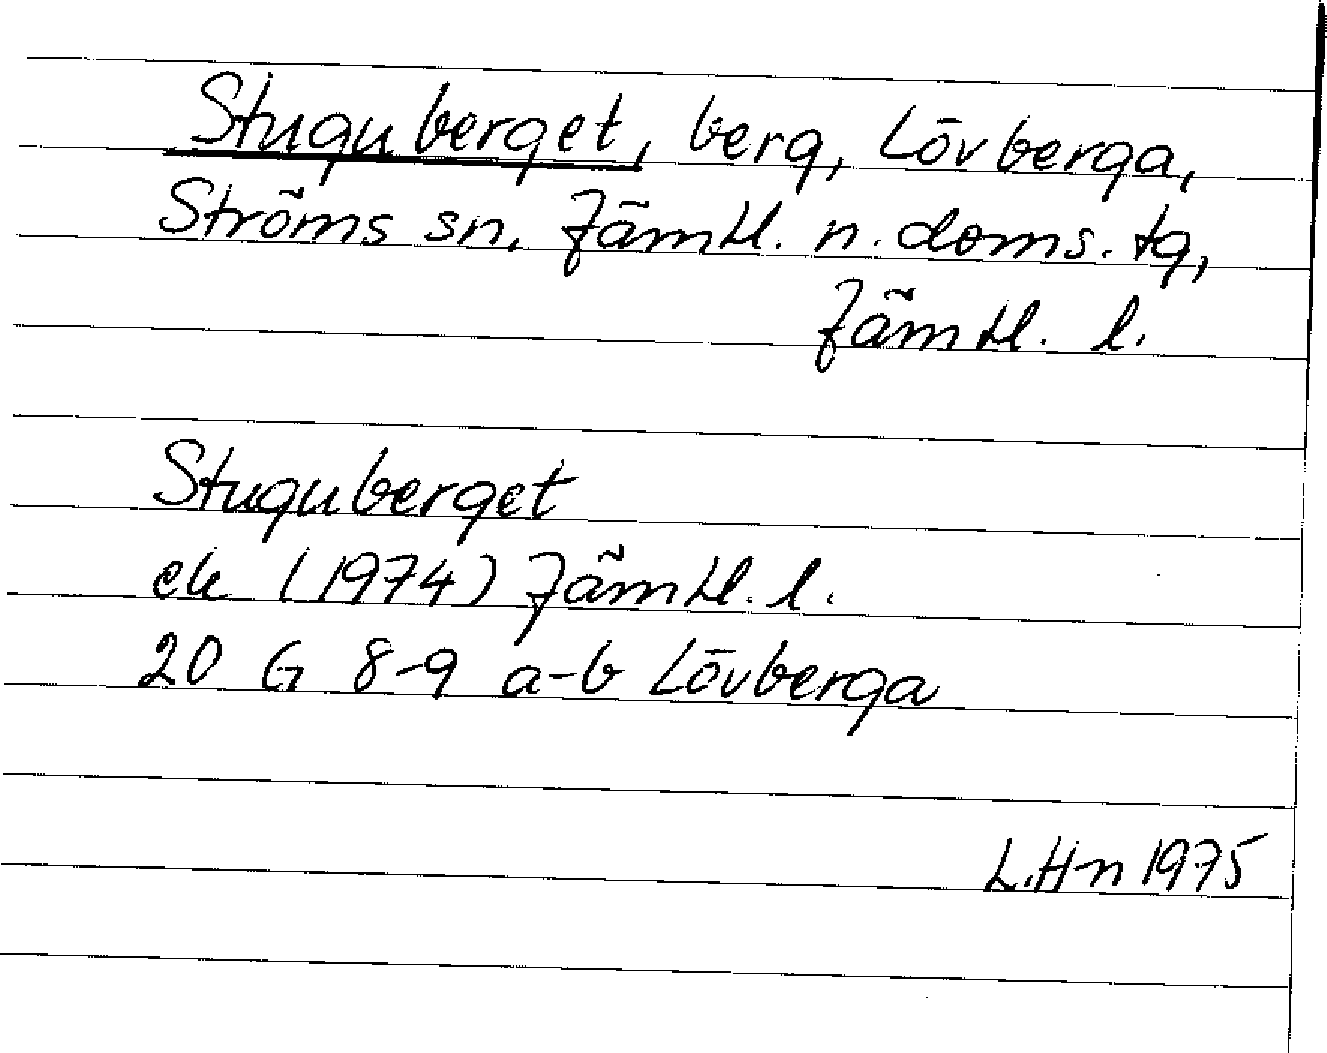 Stuguberget, berg, Lövberga,
Ströms sn, Jämtl. n. doms. tg,
Jämtl. l.
Stuguberget
ek (1974) Jämtl. l.
20 G 8-9 a-b Lövberga
L.H-n 1975